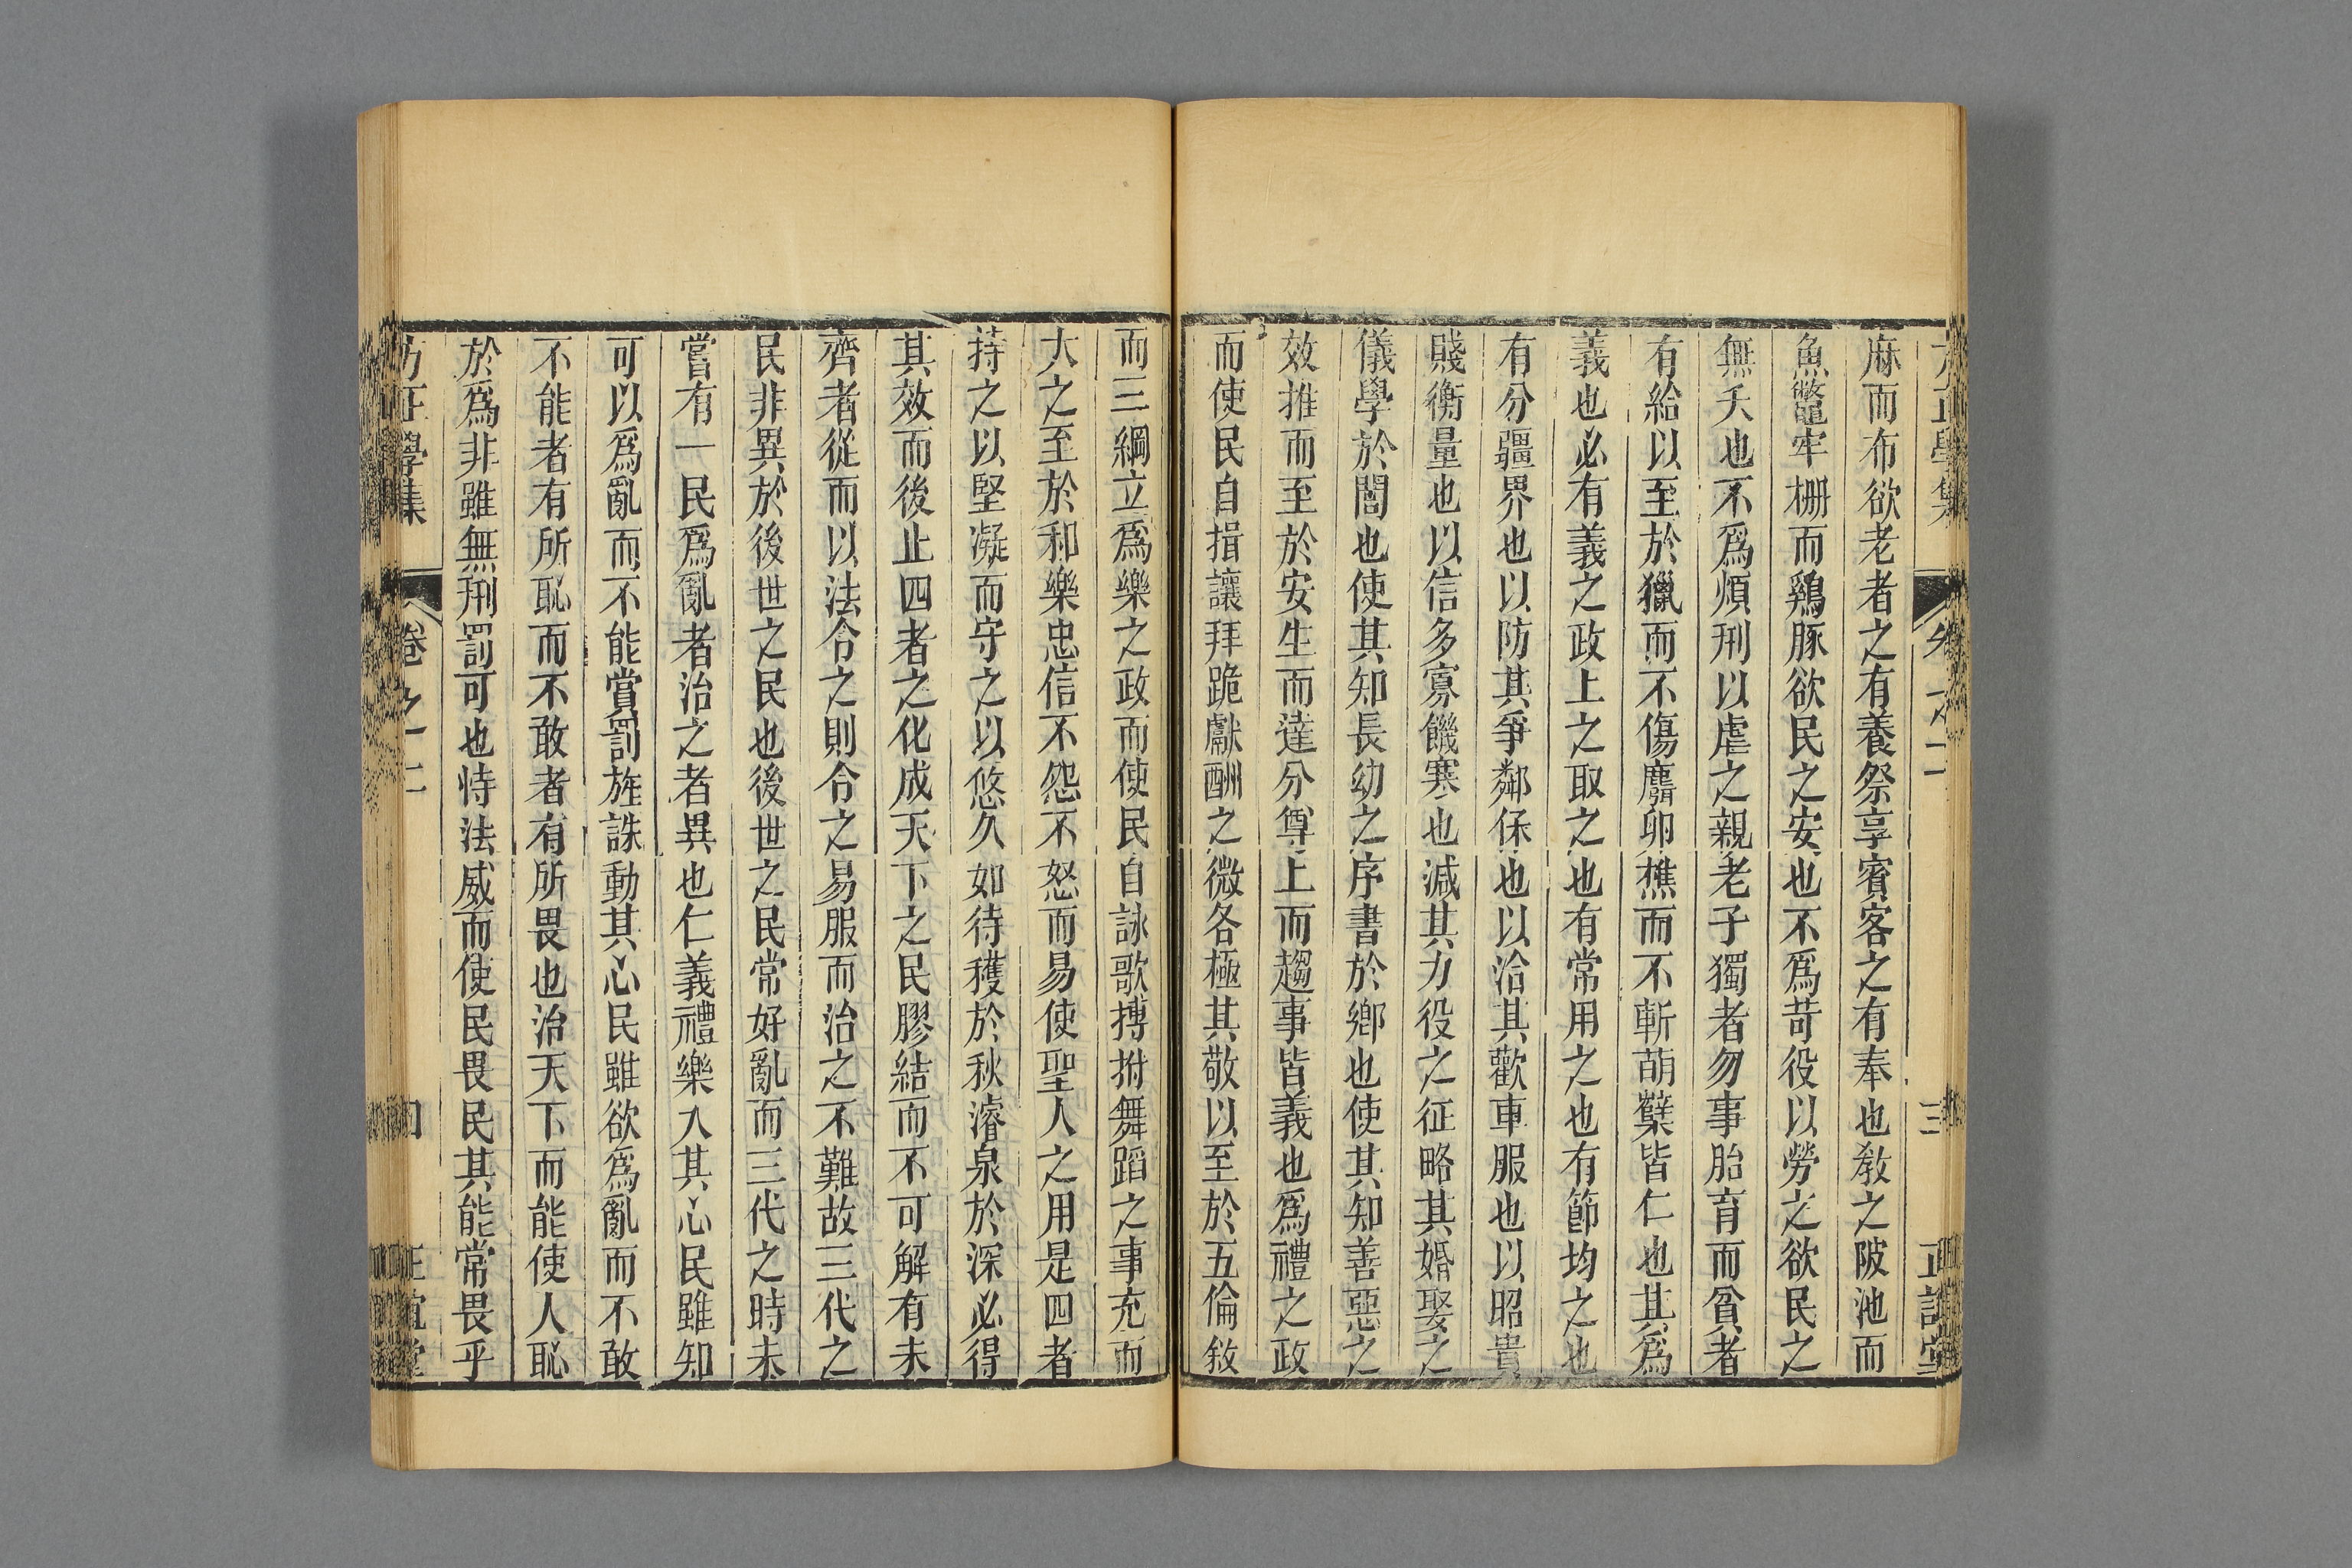 麻而布欲老者之有養祭享賓客之有奉也敎之陂池而
魚鼈牢柵而鷄豚欲民之安也不爲苛役以勞之欲民之
無夭也不爲煩刑以虐之親老子獨者勿事胎育而貧者
有給以至於獵而不傷麛卵樵而不斬萌櫱皆仁也其爲
義也必有義之政上之取之也有常用之也有節均之也
有分疆界也以防其爭鄰保也以洽其歡車服也以昭貴
賤衡量也以信多寡饑寒也減其力役之征略其婚娶之
儀學於閭也使其知長幼之序書於鄉也使其知善惡之
效推而至於安生而達分尊上而趨事皆義也爲禮之政
而使民自揖讓拜跪獻酬之微各極其敬以至於五倫敘
而三綱立爲樂之政而使民自詠歌搏拊舞蹈之事充而
大之至於和樂忠信不怨不怒而易使聖人之用是四者
持之以堅凝而守之以悠久如待穫於秋濬泉於深必得
其效而後止四者之化成天下之民膠結而不可解有未
齊者從而以法令之則令之易服而治之不難故三代之
民非異於後世之民也後世之民常好亂而三代之時未
嘗有一民爲亂者治之者異也仁義禮樂入其心民雖知
可以爲亂而不能賞罰旌誅動其心民雖欲爲亂而不敢
不能者有所恥而不敢者有所畏也治天下而能使人恥
於爲非雖無刑罰可也恃法威而使民畏民其能常畏乎
方正學集
卷之二
四
正誼堂